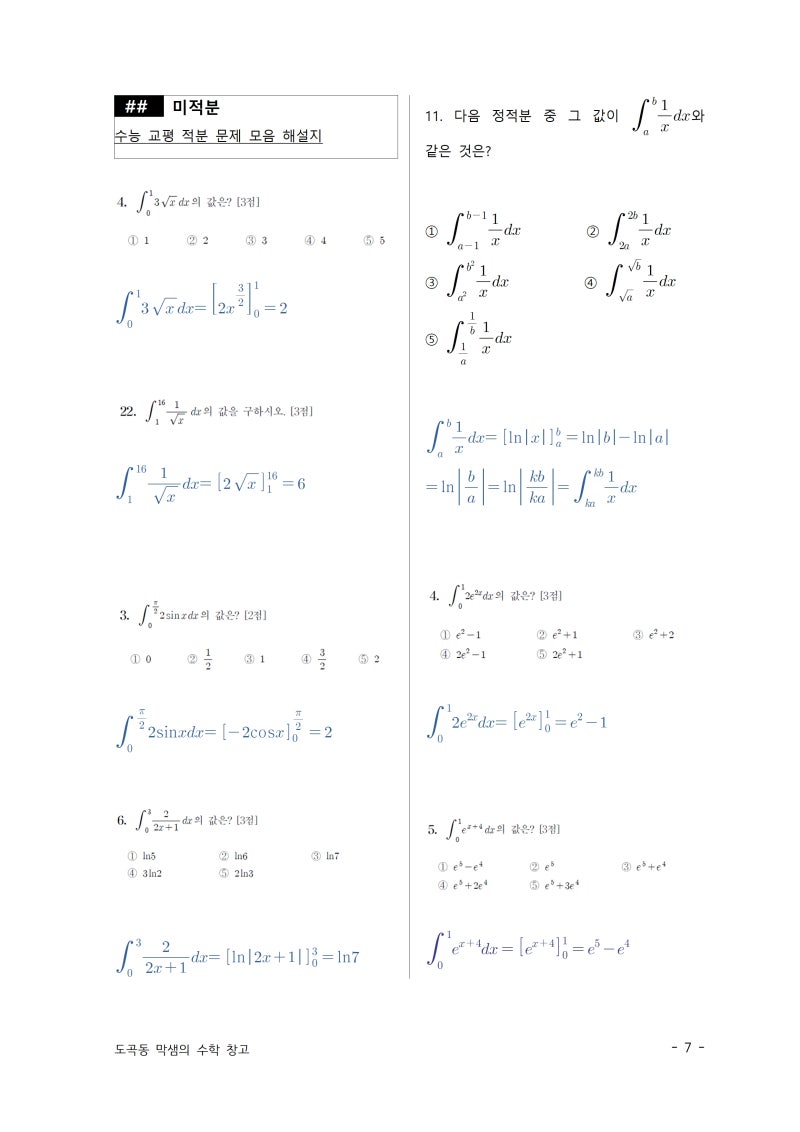 ## 미적분
수능 교평 적분 문제 모음 해설지
4. ∫₀¹ 3√x dx의 값은? [3점]
① 1 ② 2 ③ 3 ④ 4 ⑤ 5
∫₀¹ 3√x dx = [2x^(3/2)]₀¹ = 2
22. ∫₁¹⁶ 1/√x dx의 값을 구하시오. [3점]
∫₁¹⁶ 1/√x dx = [2√x]₁¹⁶ = 6
3. ∫₀^(π/2) 2sinxdx의 값은? [2점]
① 0 ② 1/2 ③ 1 ④ 3/2 ⑤ 2
∫₀^(π/2) 2sinxdx = [−2cosx]₀^(π/2) = 2
6. ∫₀³ 2/(2x+1) dx의 값은? [3점]
① ln5 ② ln6 ③ ln7
④ 3ln2 ⑤ 2ln3
∫₀³ 2/(2x+1) dx = [ln|2x+1|]₀³ = ln7
11. 다음 정적분 중 그 값이 ∫ₐᵇ 1/x dx와
같은 것은?
① ∫_(a−1)^(b−1) 1/x dx ② ∫_(2a)^(2b) 1/x dx
③ ∫_(a²)^(b²) 1/x dx ④ ∫_(√a)^(√b) 1/x dx
⑤ ∫_(1/a)^(1/b) 1/x dx
∫ₐᵇ 1/x dx = [ln|x|]ₐᵇ = ln|b|−ln|a|
= ln|b/a| = ln|kb/ka| = ∫_(ka)^(kb) 1/x dx
4. ∫₀¹ 2e^(2x)dx의 값은? [3점]
① e²−1 ② e²+1 ③ e²+2
④ 2e²−1 ⑤ 2e²+1
∫₀¹ 2e^(2x)dx = [e^(2x)]₀¹ = e²−1
5. ∫₀¹ e^(x+4)dx의 값은? [3점]
① e⁵−e⁴ ② e⁵ ③ e⁵+e⁴
④ e⁵+2e⁴ ⑤ e⁵+3e⁴
∫₀¹ e^(x+4)dx = [e^(x+4)]₀¹ = e⁵−e⁴
도곡동 막샘의 수학 창고
- 7 -